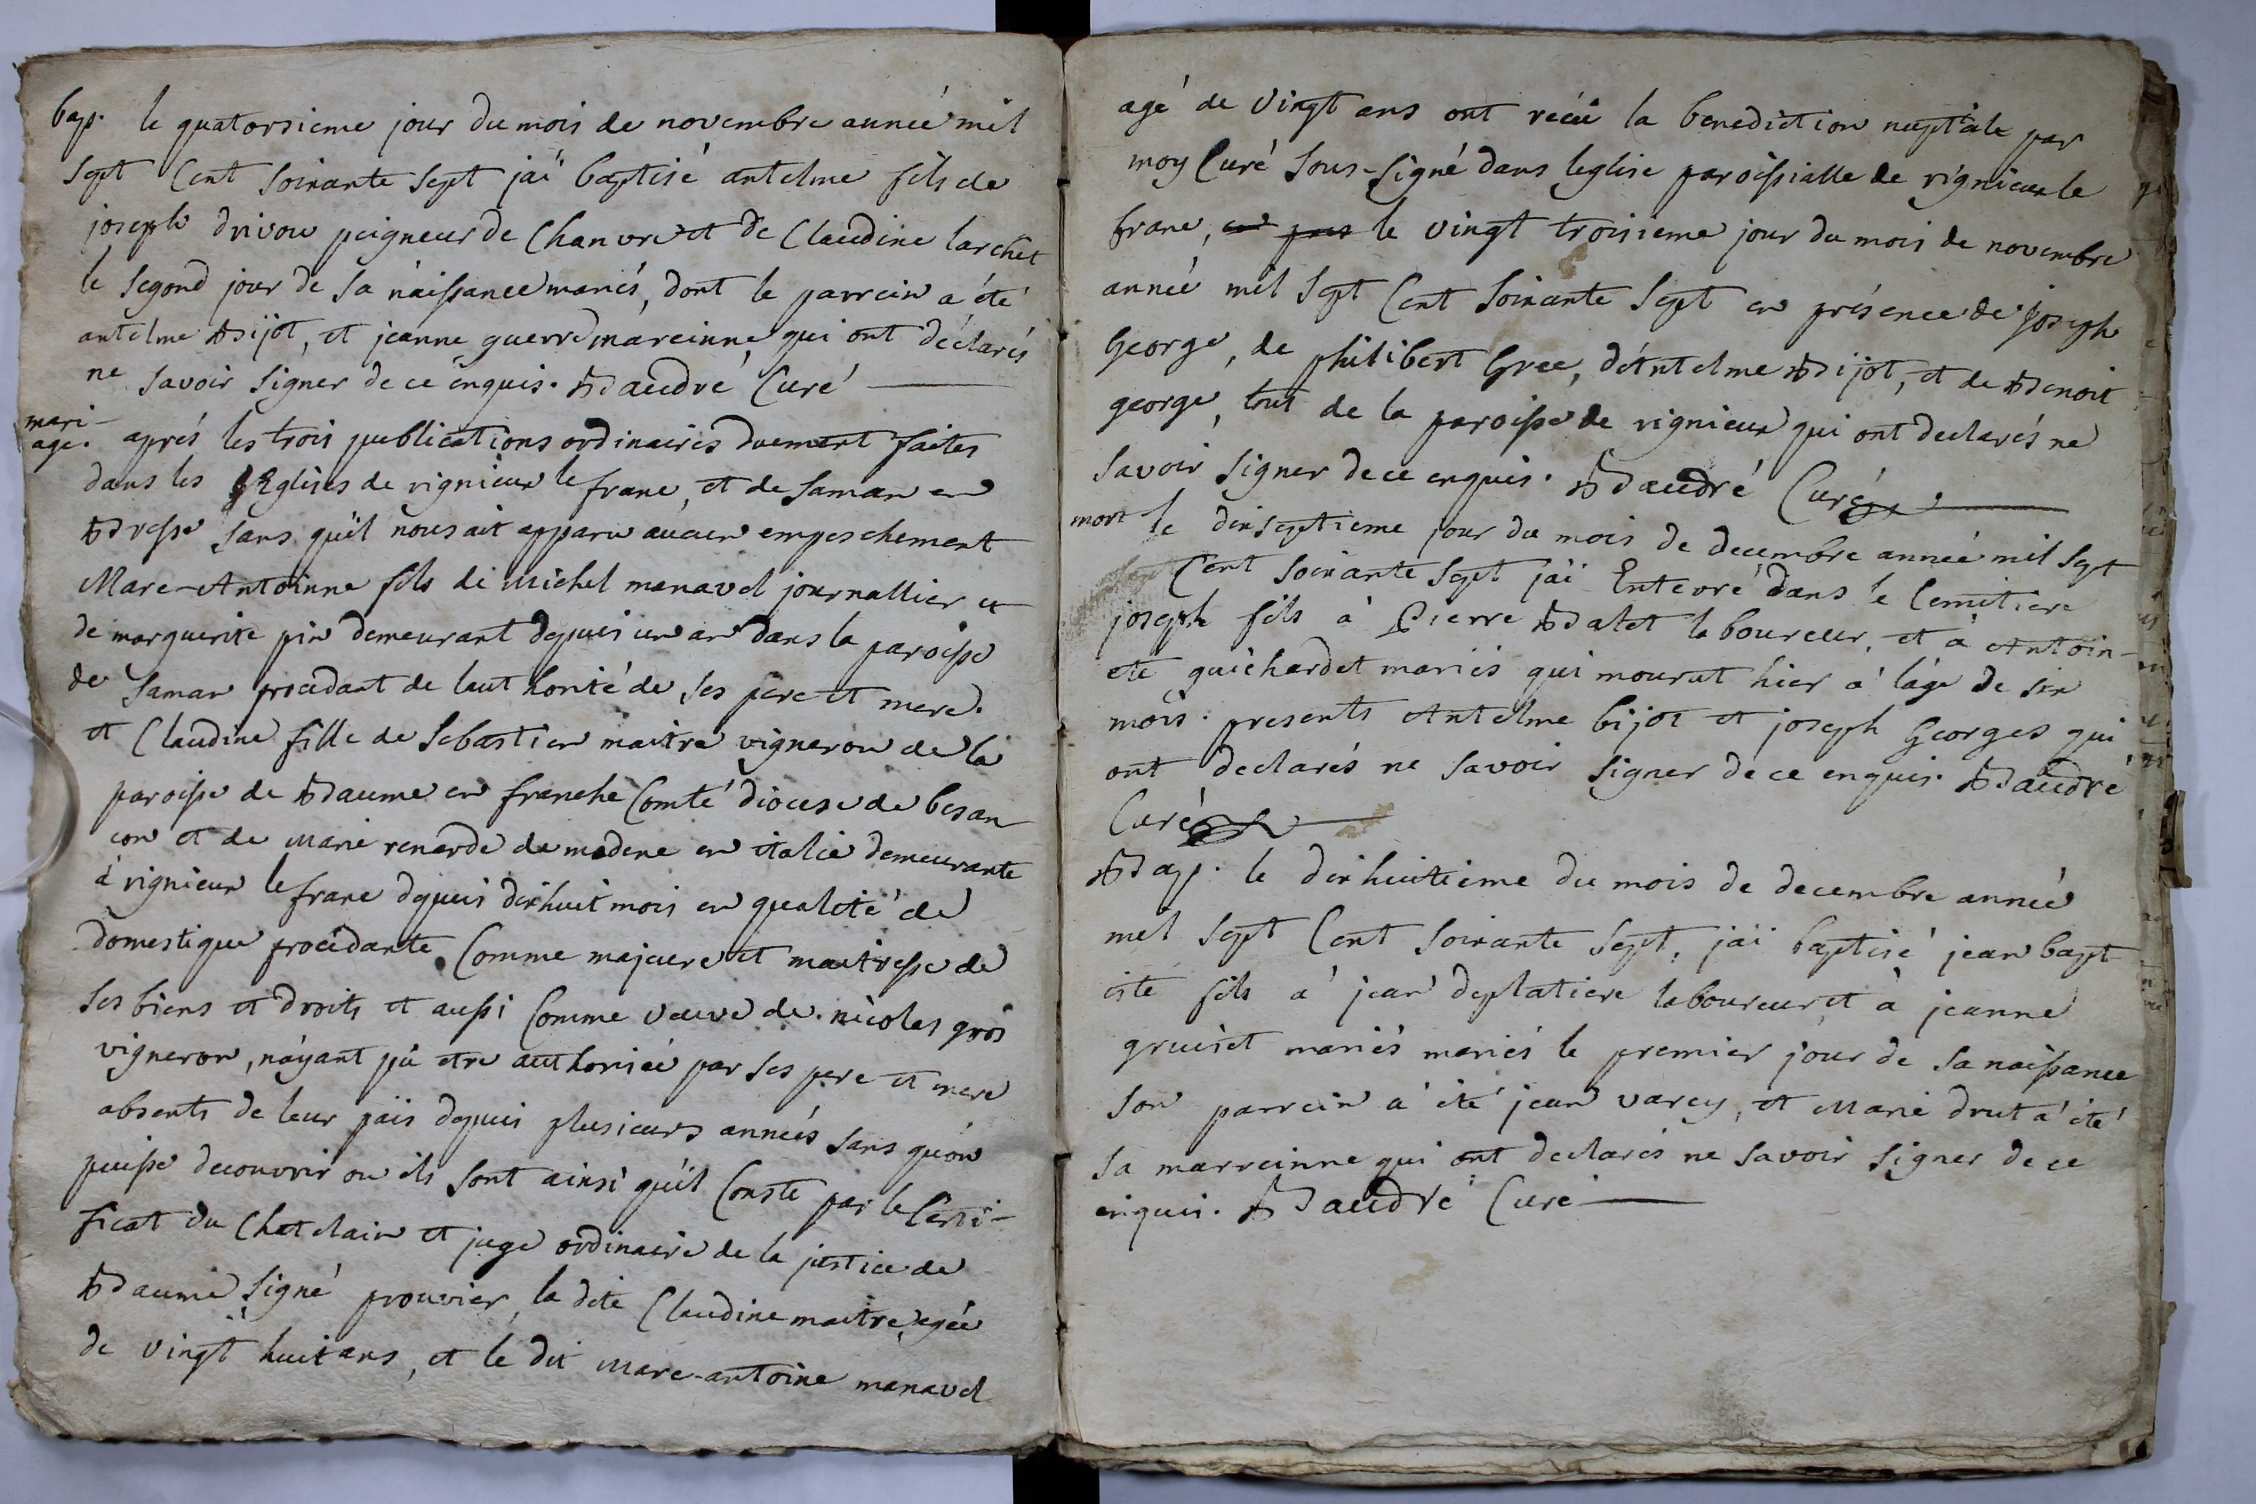 bap. le quatorzieme jour du mois de novembre année mil
sept Cent soixante sept jái baptisé antelme fils de
joseph drivon peigneur de Chanvre et de Claudine larchet
le segond jour de sa náissance mariés, dont le parrein a été
antelme Bijot, et jeanne guerre mareinne qui ont déclarés
ne savoir signer de ce enquis. Baudré Curé
mari-
age. aprés les trois publications ordinaires duement faites
dans les Eglises de rignieux le franc, et de Samar en
Bresse sans qu'il nous ait apparu aucun empeschement
Marc-Antoinne fils de Michel manavel journallier et
de marguerite pin demeurant depuis un an dans la paroisse
de Samar procedant de lauthorité de ses pere et mere.
et Claudine fille de Sebastien maitre vigneron de la
paroisse de Baume en franche Comté diocese de besan
con et de Marie renarde de modene en italie demeurante
à rignieux le franc depuis dixhuit mois en qualité de
domestique procédante Comme majeure et maitresse de
ses biens et droits et aussi Comme veuve de nicolas gros
vigneron, náyant pû etre authorisée par ses pere et mere
absents de leur païs depuis plusieurs années sans quón
puisse decouvrir ou ils sont ainsi qu'il Conste par le Certi-
ficat du Chatelain et juge ordinaire de la justice de
Baume signé prouvier, la dite Claudine maitre agée
de vingt huit ans, et le dit Marc-antoine manavel
agé de vingt ans ont récu la benediction nuptiale par
moy Curé sous-signé dans leglise paroissialle de rignieux le
franc, le vingt troisieme jour du mois de novembre
année mil sept Cent soixante sept en présence de joseph
George, de philibert Gree, dántelme Bijot, et de Benoit
george, tous de la paroisse de rignieux qui ont declarés ne
savoir signer de ce enquis. Baudré Curé
mort le dixseptieme jour du mois de decembre année mil sept
Cent soixante sept jái Enterré dans le Cemitiere
joseph fils à Pierre Balet laboureur, et à Antoin-
ete guichardet mariés qui mourut hier à láge de six
mois. presents Antelme bijot et joseph Georges qui
ont declarés ne savoir signer de ce enquis. Baudré
Curé
Bap. le dixhuitieme du mois de decembre année
mil sept Cent soixante sept, jái baptisé jean bapt
iste fils à jean deplatiere laboureur et à jeanne
gruiset mariés mariés le premier jour de sa naissance
son parrein à été jean varey, et Marie drut à été
sa marreinne qui ont declarés ne savoir signer de ce
enquis. Baudré Curé